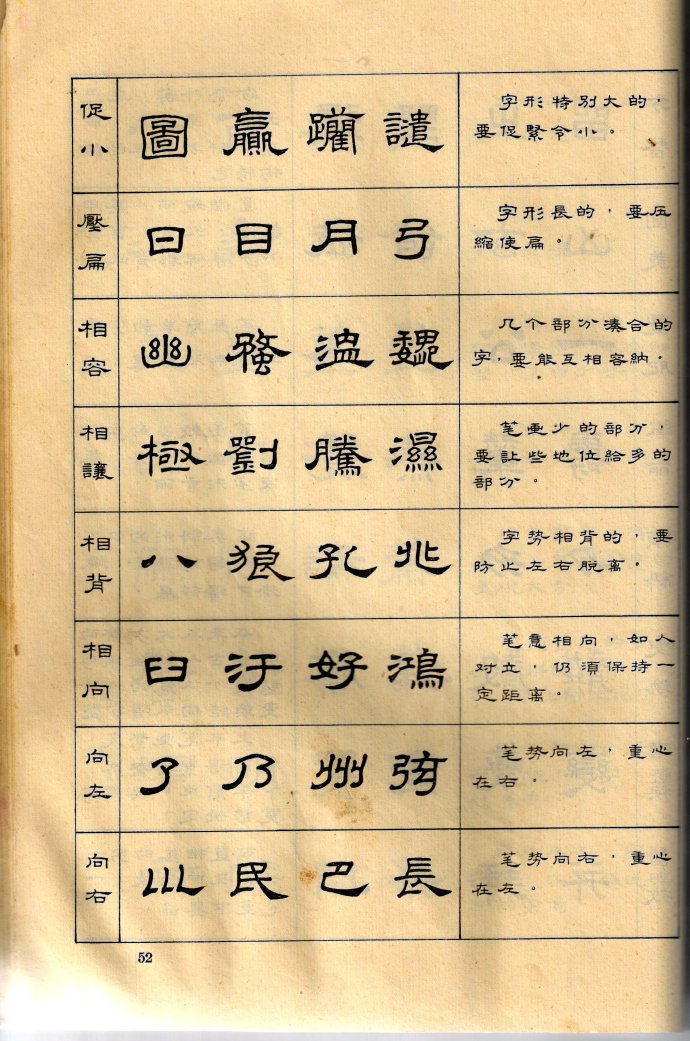 促小
圖 贏 譴
字形特别大的，
要促緊令小。
壓扁
曰 目 月 弓
字形長的，要压
縮使扁。
相容
幽 温 魏
几个部分凑合的
字，要能互相容納。
相讓
極 劉 騰 濕
笔画少的部分，
要让些地位給多的
部分。
相背
八 狼 孔
字势相背的，要
防止左右脱离。
相向
臼 汙 好 鴻
笔意相向，如人
对立，仍須保持一
定距离。
向左
了 乃 州 弦
笔势向左，重心
在右，
向右
民 巴 長
笔势向右，重心
在左。
52